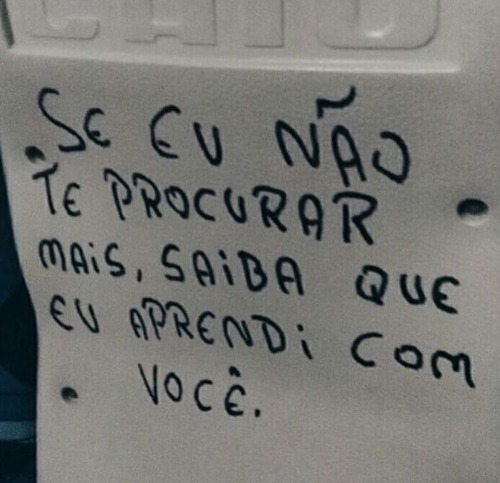 SE EU NÃO
TE PROCURAR
MAiS, SAiBA QUE
EU APRENDi COM
VOCÊ.